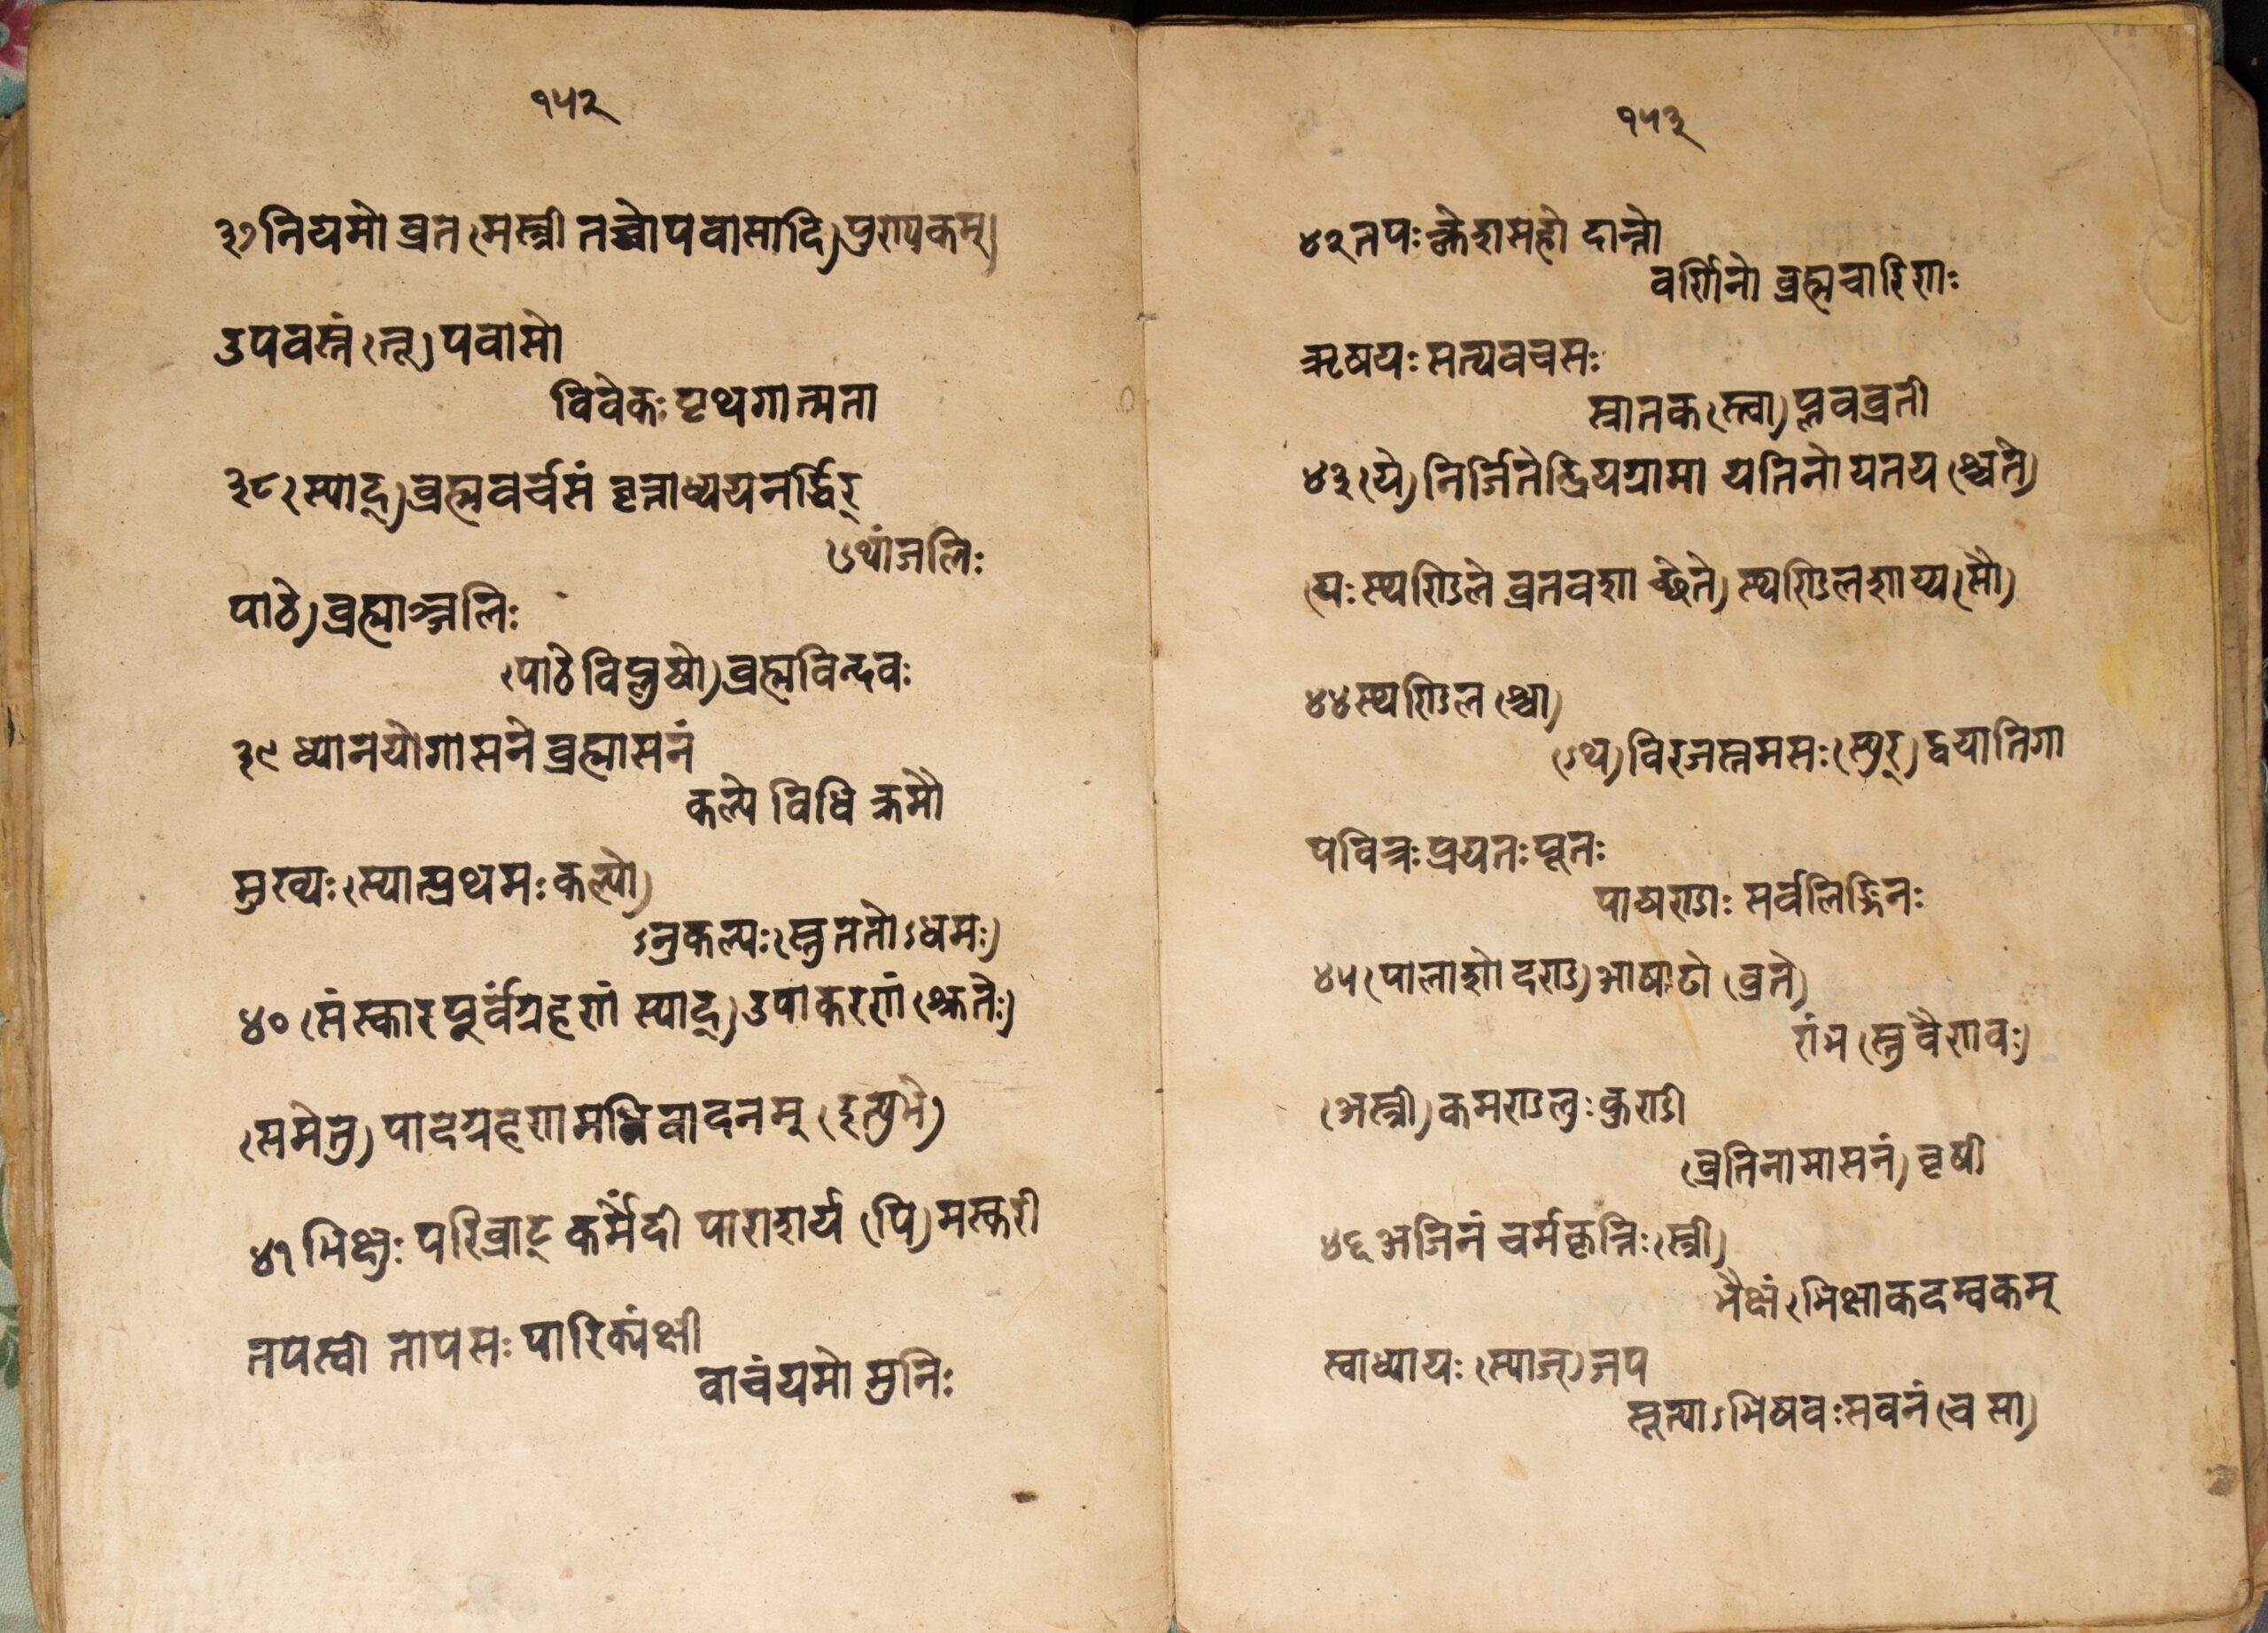 १५२
३७ नियमो व्रत (मस्त्री तच्चोपवासादि) पुण्यकम्)
उपवस्तं (तू) पवासो
विवेकः पृथगात्मता
३८ (स्याद्) ब्रह्मवर्चसं वृत्ताध्ययनर्द्धिर्
(ऽथांजलिः
पाठे) ब्रह्माञ्जलिः
(पाठे विप्रुषो) ब्रह्मविन्दवः
३९ ध्यानयोगासने ब्रह्मासनं
कल्पे विधि क्रमौ
मुख्यः (स्यात्प्रथमः कल्पो)
ऽनुकल्पः (स्तु ततोऽधमः)
४० (संस्कारपूर्वंग्रहणं स्याद्) उपाकरणं (श्रुतेः)
(समेतु) पादग्रहणमभिवादनम् (इत्युभे)
४१ भिक्षुः परिव्राट् कर्मंदी पाराशर्य (पि) मस्करी
तपस्वी तापसः पारिकांक्षी
वाचंयमो मुनिः
१५३
४२ तपः क्लेशसहो दान्तो
वर्णिनो ब्रह्मचारिणः
ऋषयः सत्यवचसः
स्नातक (स्त्वा) प्लवव्रती
४३ (ये) निर्जितेन्द्रियग्रामा यतिनो यतय (श्चते)
(यः स्थण्डिले व्रतवशा च्छेते) स्थण्डिलशाय्य (सौ)
४४ स्थण्डिल (श्चा)
(ऽथ) विरजस्तमसः (स्युर्) द्वयातिगा
पवित्रः प्रयतः पूतः
पाषण्डाः सर्वलिङ्गिनः
४५ (पालाशो दण्ड) आषाढो (व्रते)
रांभ (स्तु वैणवः)
(अस्त्री) कमण्डलुः कुण्डी
(व्रतिनामासनं) वृषी
४६ अजिनं चर्म कृत्तिः (स्त्री)
भैक्षं (भिक्षाकदम्वकम्
स्वाध्यायः (स्याज्) जप
सूत्याऽभिषवः सवनं (च सा)